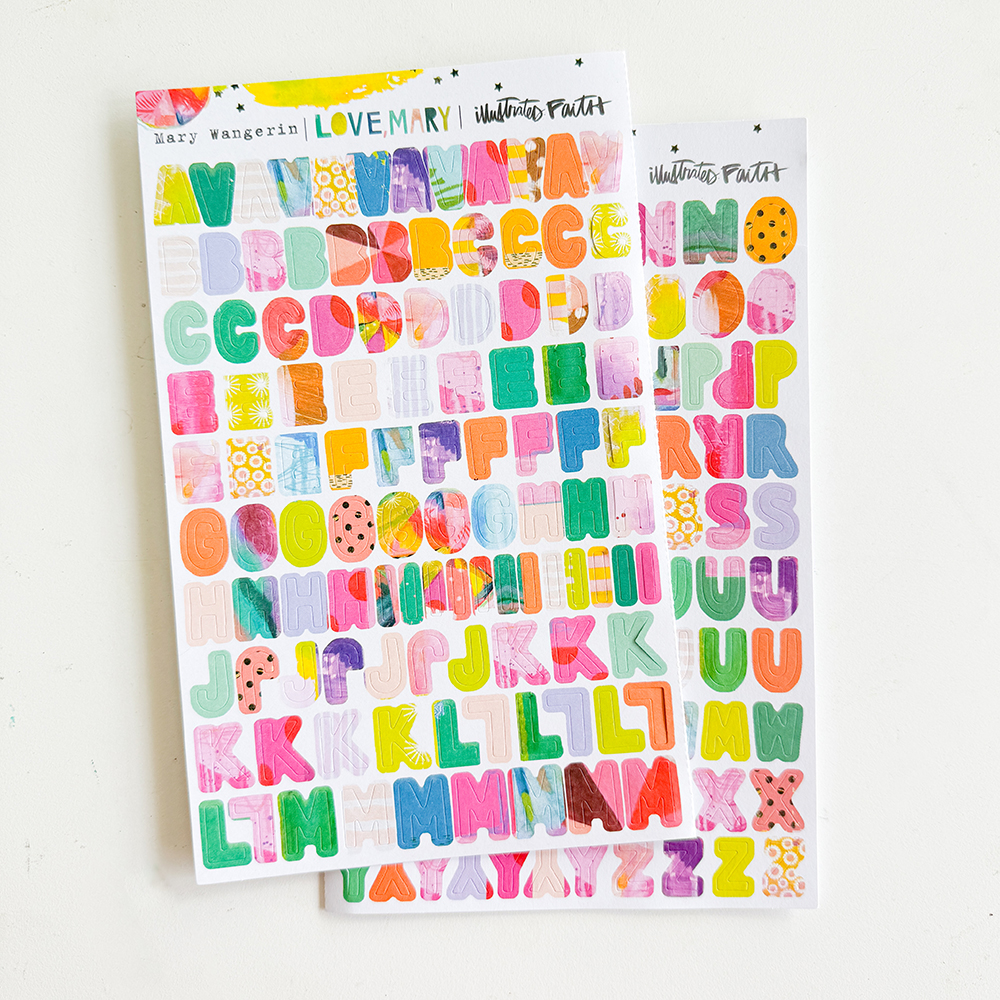 Mary Wangerin | LOVE, MARY | illustrated FAITH
AAAAAAAAAAAA
BBBBBBBCCCC
CCCDDDDDDD
EEEEEEEEE
FFFFFFFFFF
GGGGGGGHHH
HHHHIIIIIIIIIIII
JJJJJJJKKK
KKKKLLLLLL
LLMMMMMMM
illustrated FAITH
NNO
OOO
PPP
RRR
SSS
UUU
UU
WW
XX
YYYYYYZZZZ